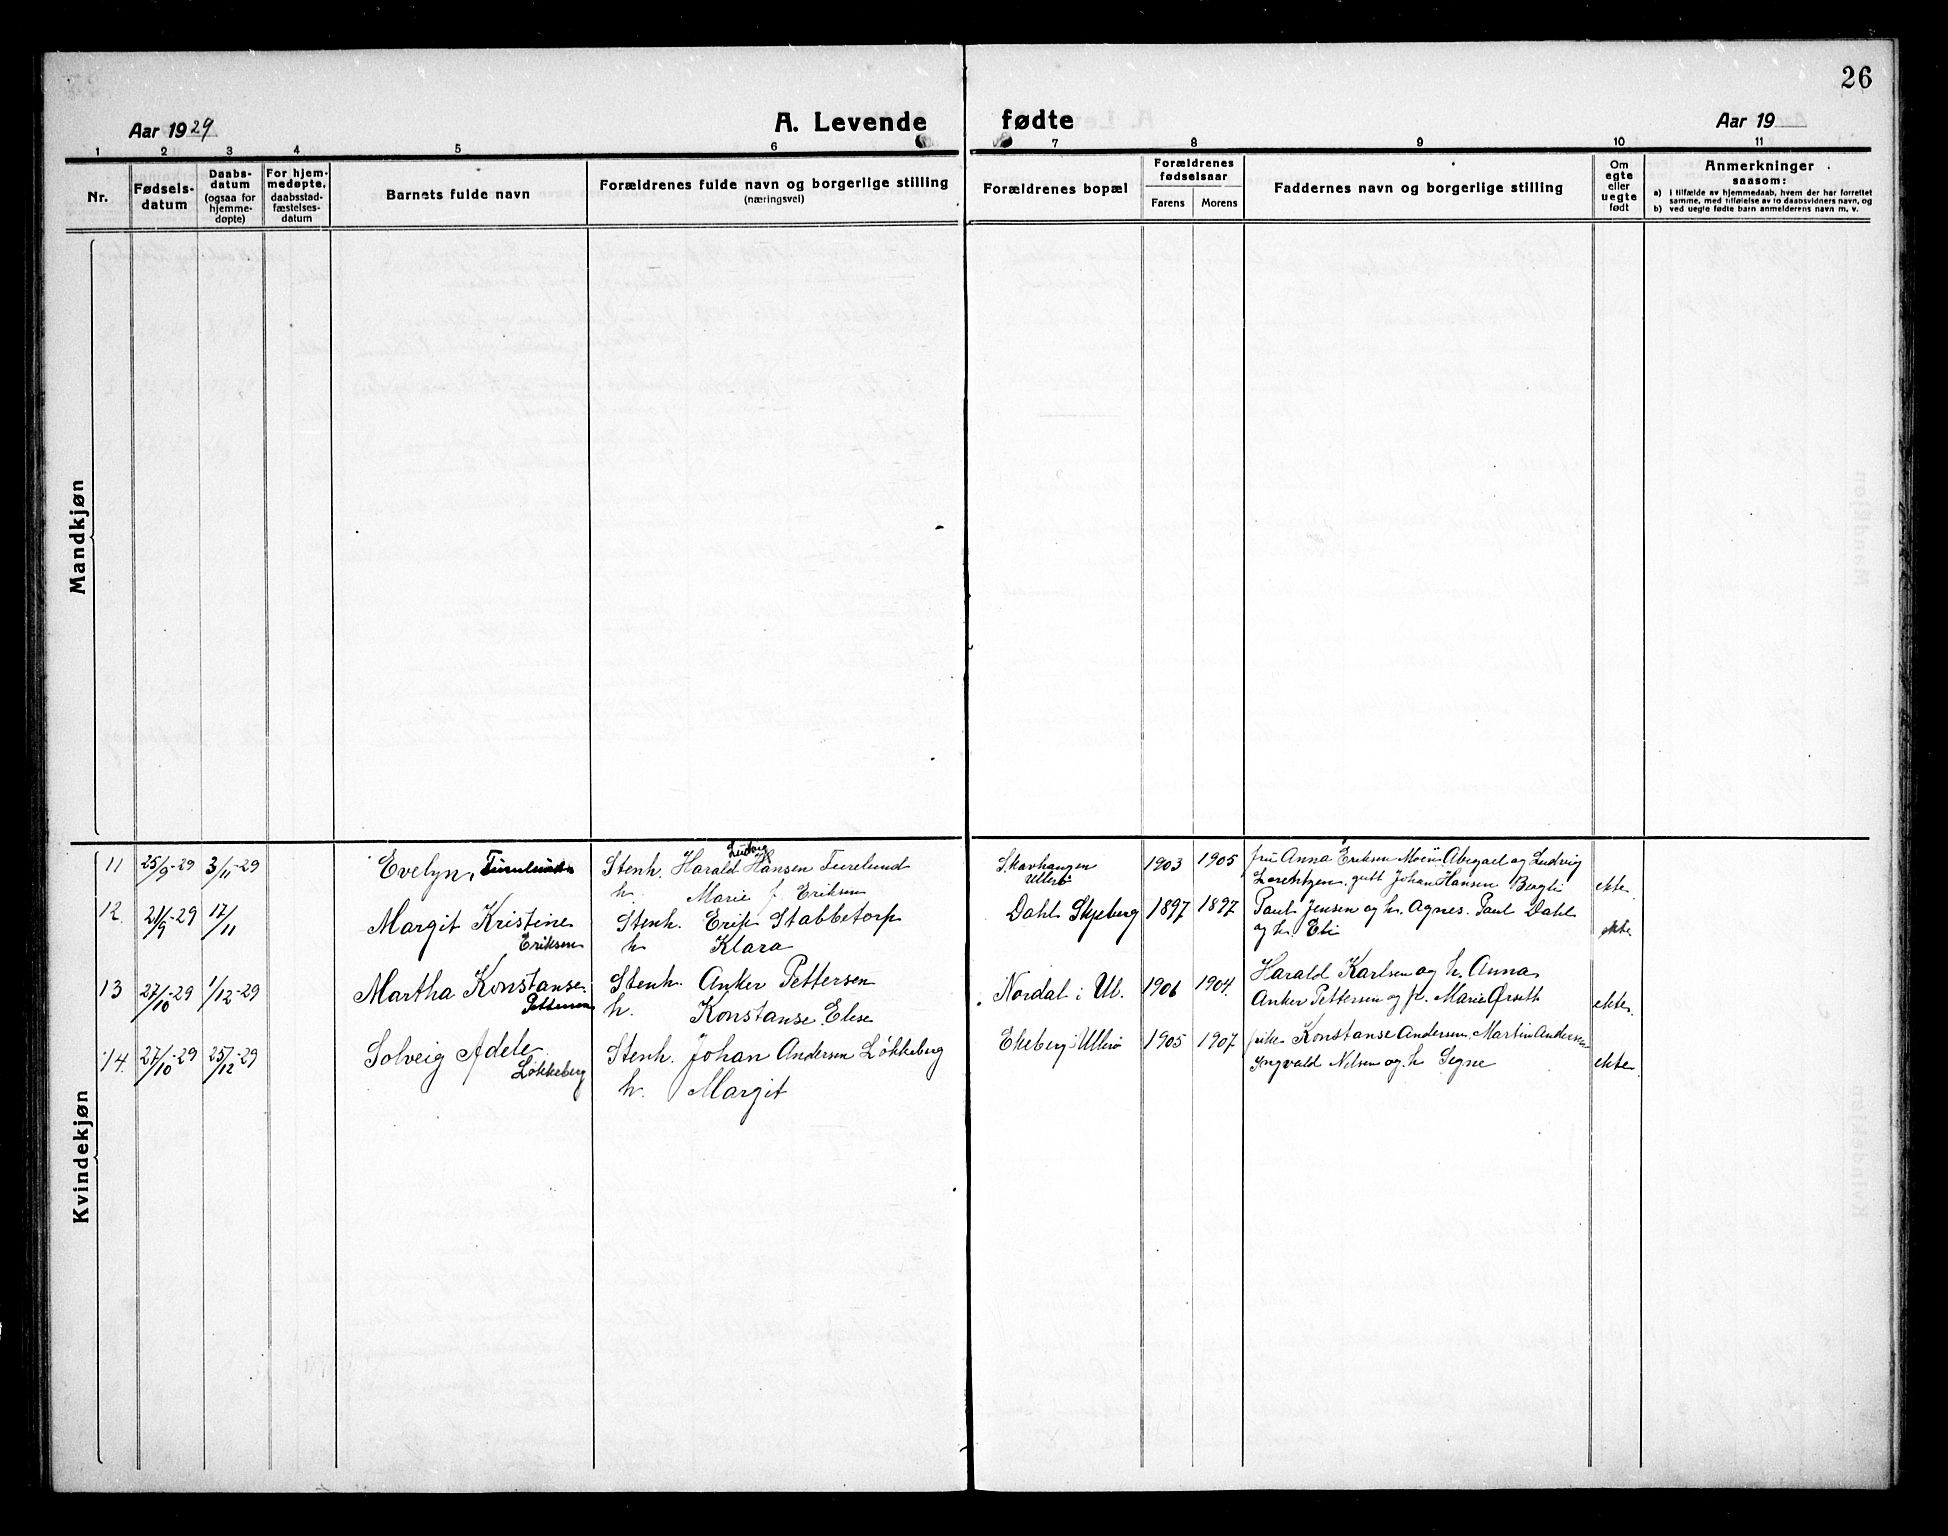 26
Aar 1929
A. Levende fødte
Aar 19
1 2 3 4 5 6 7 8 9 10 11
Nr.
Fødsels-
datum
Daabs-
datum
(ogsaa for
hjemme-
døpte)
For hjem-
medøpte,
daabsstad-
fæstelses-
datum
Barnets fulde navn
Forældrenes fulde navn og borgerlige stilling
(næringsvei)
Forældrenes bopæl
Forældrenes
fødselsaar
Farens Morens
Faddernes navn og borgerlige stilling
Om
egte
eller
uegte
født
Anmerkninger
saasom:
a) i tilfælde av hjemmedaab, hvem der har forrettet
samme, med tilføielse av to daabsvidners navn, og
b) ved uegte fødte barn anmelderens navn m. v.
Mandkjøn
Kvindekjøn
11 25/9-29 3/11-29 Evelyn, Stenh. Harald Ludvig Hansen Skavhaugen 1903 1905 fru Anna Eriksen Abigael og Ludvig
h. Marie f. Eriksen Ullerø Lorentzen, gutt Johan Hansen ekte
12. 21/9-29 17/11 Margit Kristine Stenh. Erik Stabbetorp Dahl Skjeberg 1897 1897 Paul Jensen og h. Agnes. Paul Dahl
Eriksen h Klara og h. Eli ekte
13 27/10-29 1/12-29 Martha Konstanse Stenh. Anker Pettersen Nordal i Ul. 1906 1904. Harald Karlsen og h. Anna
Pettersen h. Konstanse Elese Anker Pettersen og fr. Marie Ørseth ekte.
14. 27/10-29 25/12-29 Solveig Adele Stenh. Johan Andersen Løkkeberg Ekeberg i Ullerø 1905 1907. Konstanse Andersen, Martin Andersen
Løkkeberg h. Margit Ingvald Nilsen og h Signe ekte